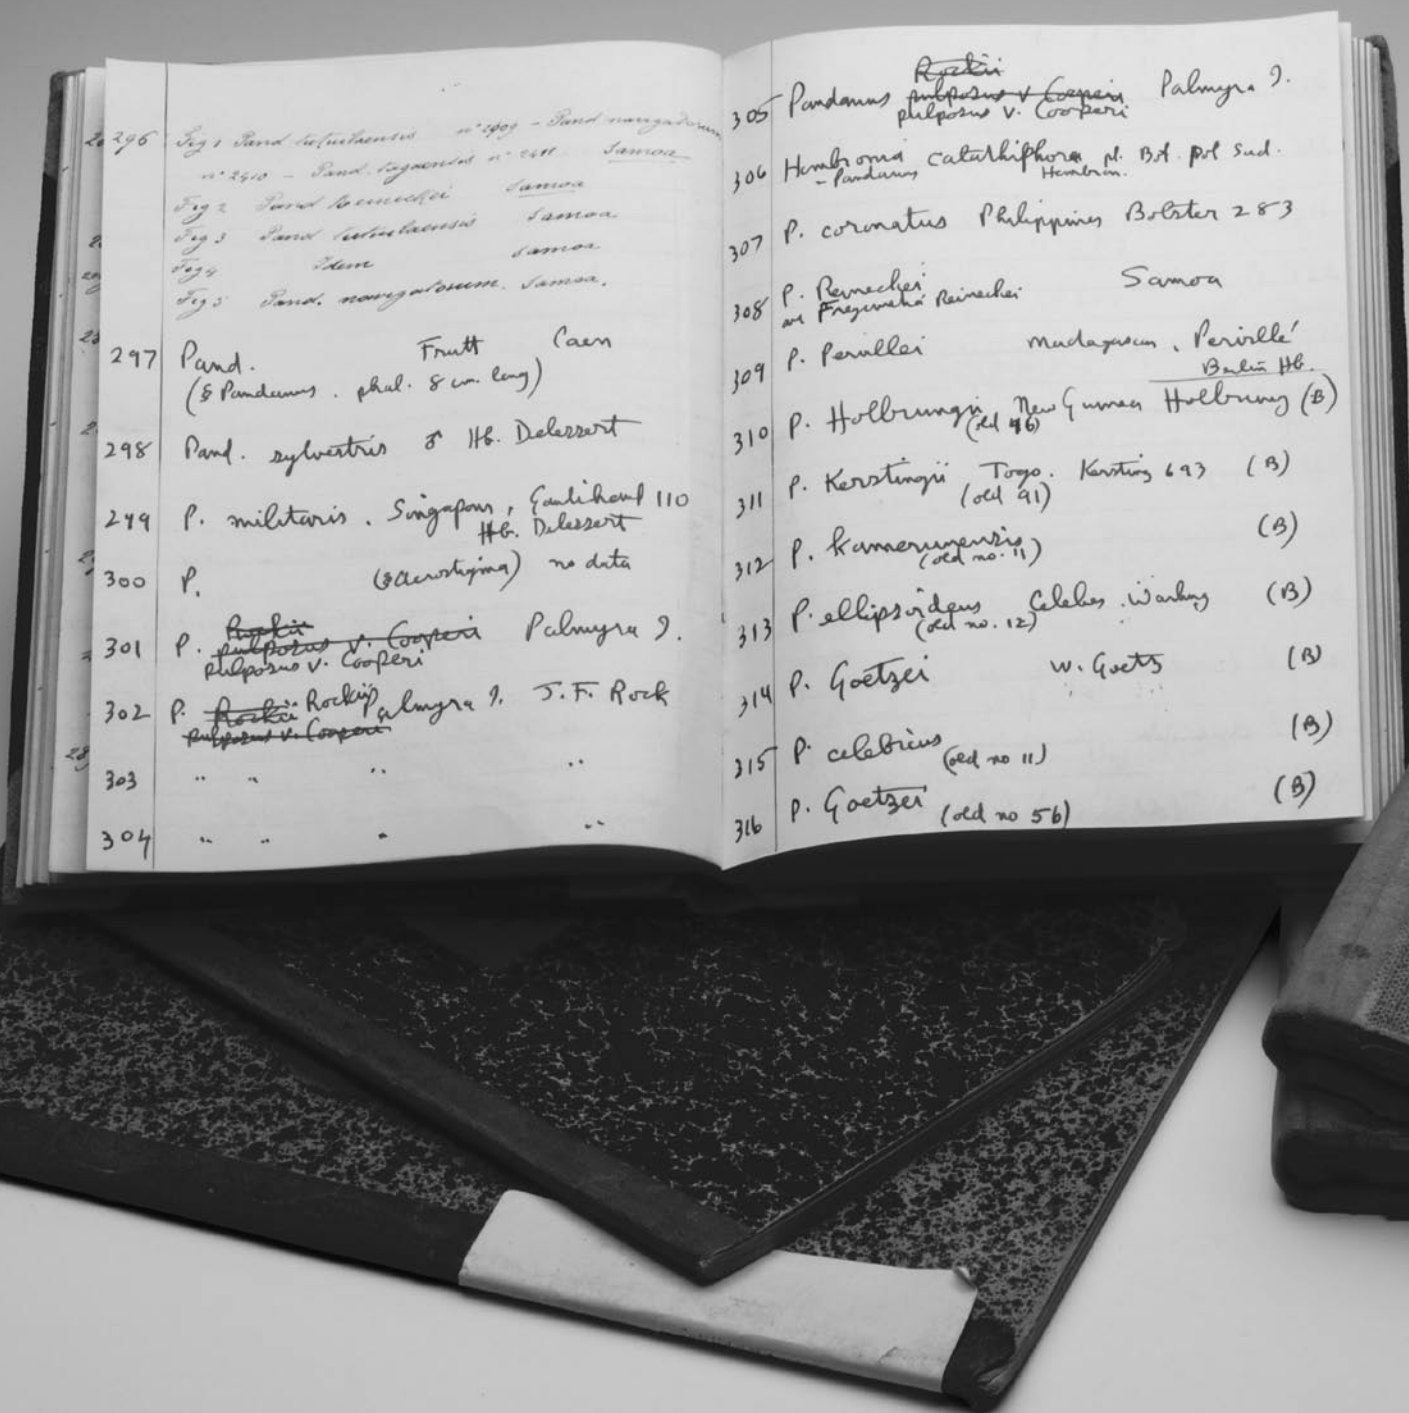 296 Fig 1 Pand tutuilaensis n° 2409 - Pand navigatorum
n° 2410 - Pand. n° 2411 Samoa
Fig 2 Pand Reineckei Samoa
Fig 3 Pand tutuilaensis Samoa
Fig 4 Idem Samoa
Fig 5 Pand. navigatorum. Samoa.
297 Pand. Frutt Caen
(§ Pandanus . phal. 8 cm. long)
298 Pand. sylvestris ♂ Hb. Delessert
299 P. militaris . Singapour, 110
Hb. Delessert
300 P. (§ Acrostigma) no data
Rockii
301 P. pulposus v. Cooperi Palmyra I.
pulposus v. Cooperi
302 P. Rockii Rockii Palmyra I. J.F. Rock
pulposus v. Cooperi
303 " " " "
304 " " " "
Rockii
305 Pandanus pulposus v Cooperi Palmyra I.
pulposus v. Cooperi
306 Hombronia calathiphora pl. Bot. pol Sud.
- Pandanus Hombron.
307 P. coronatus Philippines Bolster 283
308 P. Reineckei Samoa
Reineckei
309 P. Pervillei Madagascar, Pervillé
Berlin Hb.
310 P. Hollrungii New Guinea Hollrung (B)
(old 46)
311 P. Kerstingii Togo. Kersting 693 (B)
(old 91)
312 P. kamerunensis (B)
(old no. 11)
313 P. ellipsoideus Celebes . Warburg (B)
(old no. 12)
314 P. Goetzei W. Goetz (B)
315 P. celebicus (B)
(old no 11)
316 P. Goetzei (B)
(old no 56)